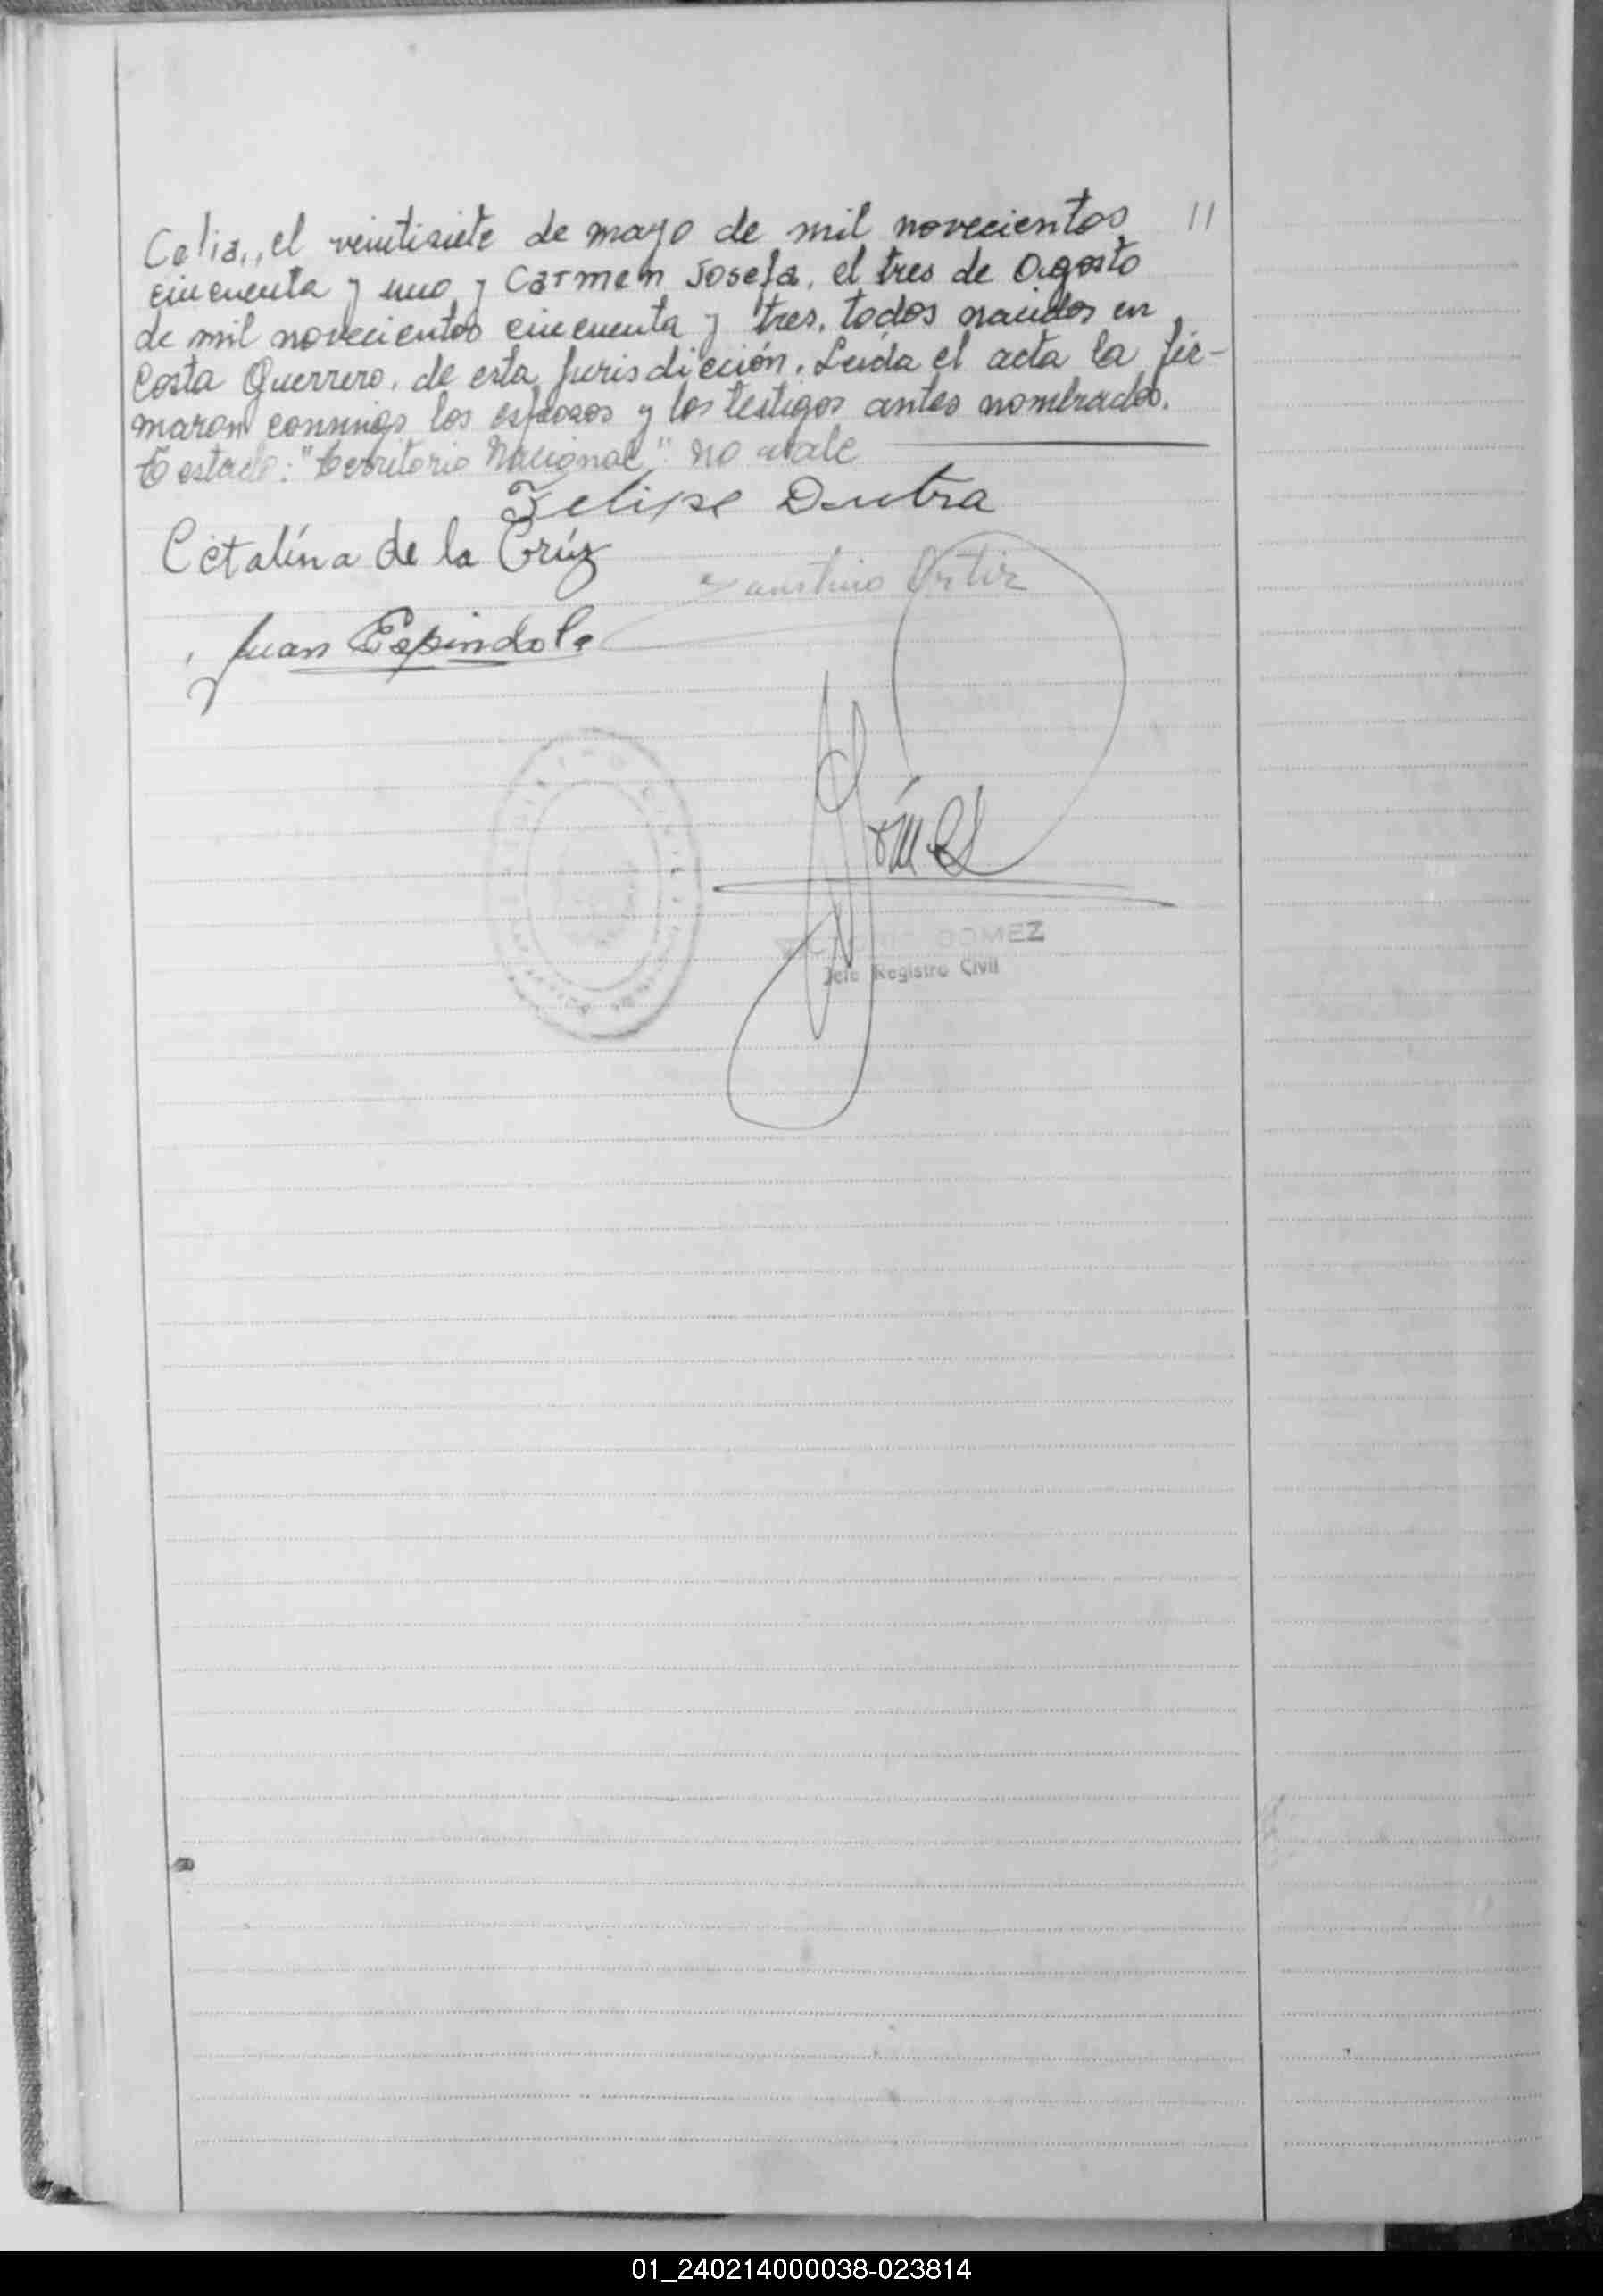 Celia, el veintisiete de mayo de mil novecientos 11
cincuenta y uno y Carmen Josefa, el tres de Agosto
de mil novecientos cincuenta y tres, todos nacidos en
Costa Guerrero, de esta Jurisdicción. Leída el acta la fir-
maron conmigo los esposos y los testigos antes nombrados.
Testado: "Territorio Nacional" no vale
Felipe Dutra
Catalína de la Crúz
Faustino Ortiz
Juan Espindola
Gómez
VICTORIO GOMEZ
Jefe Registro Civil
01_240214000038-023814